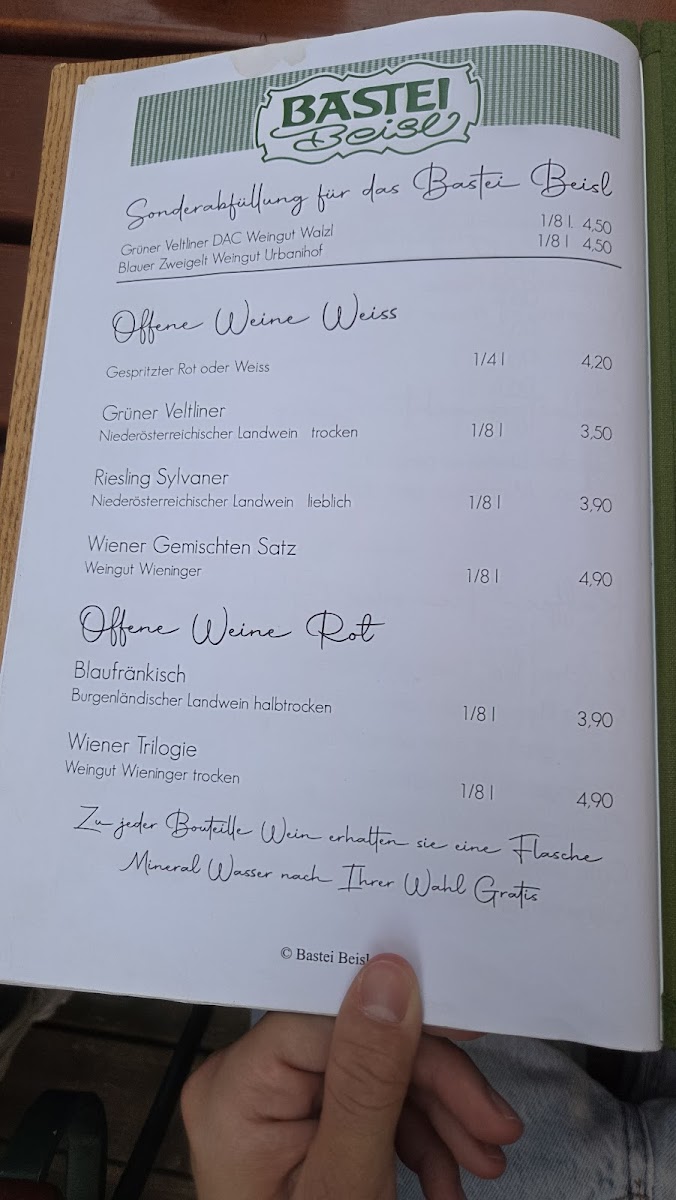 BASTEI
Beisl
Sonderabfüllung für das Bastei Beisl
Grüner Veltliner DAC Weingut Walzl 1/8 l. 4,50
Blauer Zweigelt Weingut Urbanihof 1/8 l 4,50
Offene Weine Weiss
Gespritzter Rot oder Weiss 1/4 l 4,20
Grüner Veltliner
Niederösterreichischer Landwein trocken 1/8 l 3,50
Riesling Sylvaner
Niederösterreichischer Landwein lieblich 1/8 l 3,90
Wiener Gemischten Satz
Weingut Wieninger 1/8 l 4,90
Offene Weine Rot
Blaufränkisch
Burgenländischer Landwein halbtrocken 1/8 l 3,90
Wiener Trilogie
Weingut Wieninger trocken 1/8 l 4,90
Zu jeder Bouteille Wein erhalten sie eine Flasche
Mineral Wasser nach Ihrer Wahl Gratis
© Bastei Beisl